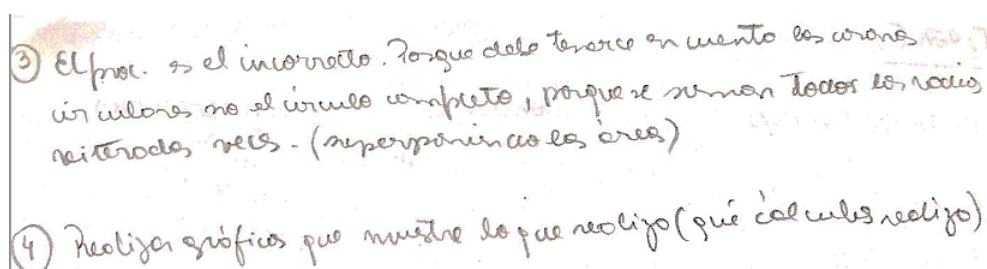 ③ El proc. es el incorrecto. Porque debe tenerse en cuenta las coronas
circulares no el círculo completo, porque se suman todos los radios
reiteradas veces. (superponiendo las áreas)
④ Realizar gráficos que muestre lo que realizo (qué cálculos realizo)